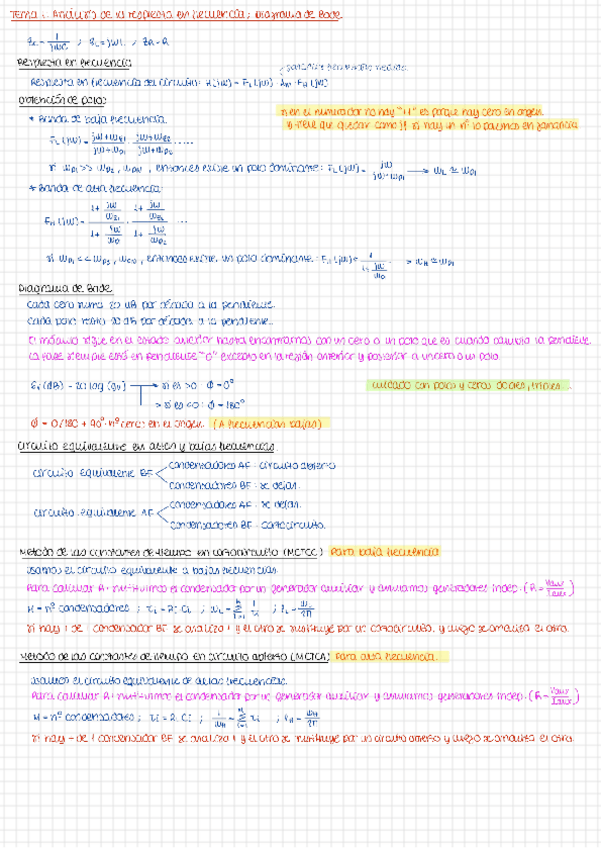 Tema 1: Análisis de la respuesta en frecuencia; Diagrama de Bode.
Zc = 1/jωC ; ZL = jωL ; ZR = R
Respuesta en frecuencia
ganancia frecuencias medias.
Respuesta en frecuencia del circuito: A(jω) = FL(jω) · AM · FH(jω)
Obtención de polos:
* Banda de baja frecuencia
si en el numerador no hay "+1" es porque hay cero en origen.
FL(jω) = jω+ωz1/jω+ωp1 · jω+ωz2/jω+ωp2 .....
si ωp1 >> ωp2, ωzn, entonces existe un polo dominante: FL(jω) = jω/jω+ωp1 → ωL ≃ ωp1
* Banda de alta frecuencia:
Diagrama de Bode
Cada cero suma 20 dB por década a la pendiente.
Cada polo resta 20 dB por década a la pendiente.
El módulo sigue en el estado anterior hasta encontrarnos con un cero o un polo que es cuando cambia la pendiente.
La fase siempre está en pendiente "0" excepto en la región anterior y posterior a un cero o un polo.
→ si es >0: Φ = 0º
cuidado con polos y ceros dobles, triples...
→ si es <0: Φ = 180º
Φ = 0/180 + 90º · nº ceros en el origen. (A frecuencias bajas)
Circuito equivalente en altas y bajas frecuencias
circuito equivalente BF
condensadores AF: circuito abierto
condensadores BF: se dejan.
circuito equivalente AF
condensadores AF: se dejan.
condensadores BF: cortocircuito.
Método de las constantes de tiempo en cortocircuito (MCTCC) Para baja frecuencia
Usamos el circuito equivalente a bajas frecuencias.
Para calcular Ri sustituimos el condensador por un generador auxiliar y anulamos generadores indep. (R = Vaux/Iaux)
si hay + de 1 condensador BF se analiza 1 y el otro se sustituye por un cortocircuito y luego se analiza el otro.
Método de las constantes de tiempo en circuito abierto (MCTCA) Para alta frecuencia.
Usamos el circuito equivalente de altas frecuencias.
Para calcular Ri sustituimos el condensador por un generador auxiliar y anulamos generadores indep. (R = Vaux/Iaux)
si hay + de 1 condensador BF se analiza 1 y el otro se sustituye por un circuito abierto y luego se analiza el otro.